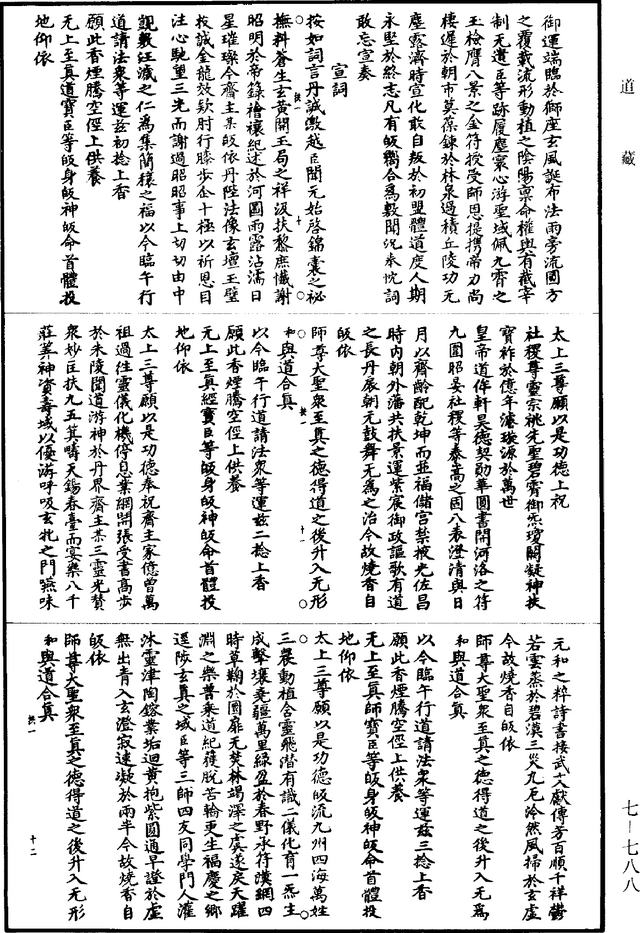 道藏
御運端臨於獅座玄風誕布法雨旁流圓方
之覆載流形動植之陰陽稟命權輿有截宰
制无遺臣等跡履塵寰心游聖域佩九霄之
玉檢膺八景之金符授受師恩提攜帝力尚
棲遲於朝市莫葆鍊於林泉過積丘陵功元
塵露濟時宣化敢自叛於初盟體道度人期
永堅於終志凡有皈嚮合爲敷聞況承忱詞
敢忘宣奏
宣詞
按如詞言丹誠激越臣聞元始啓錦囊之祕
撫科蒼生玄黃開玉局之祥汲扶黎庶懺謝
昭明於帝籙禬禳紀述於河圖雨露沾濡日
星璀璨今齋主某皈依丹陛法像玄壇玉璧
投誠金龍效欵肘行膝步企十極以祈恩目
注心馳望三光而謝過昭昭事上切切由中
覬敷汪濊之仁爲集蕑穰之福以今臨午行
道請法衆等運茲初捻上香
願此香煙騰空徑上供養
无上至真道寶臣等皈身皈神皈命首體投
地仰依
太上三尊願以是功德上祝
社稷尊靈宗祧先聖碧霄御炁瓊闕凝神扶
寶祚於億年濬璇源於萬世
皇帝道侔軒昊德契勛華圖書開河洛之符
九圍昭晏社稷等泰嵩之固八表澄清與日
月以齊齡配乾坤而並福儲宮禁掖光佐昌
時内朝外藩共扶景運紫扆御政謳歌有道
之長丹扆朝元鼓舞无爲之治今故燒香自
皈依
師尊大聖衆至真之德得道之後升入无形
和與道合真
以今臨午行道請法衆等運茲二捻上香
願此香煙騰空徑上供養
无上至真經寶臣等皈身皈神皈命首體投
地仰依
太上三尊願以是功德奉祝齋主家億曾萬
祖過往靈儀化機停息業網開張受書高步
於朱陵聞道游神於丹界齋主某三靈光贊
衆妙巨扶九五箕疇天錫春臺而宴樂八千
莊算神資壽域以優游呼吸玄牝之門嚥味
元和之粹詩書接武文獻傳芳百順千祥鬱
若雲蒸於碧漢三災九厄泠然風掃於玄虛
今故燒香自皈依
師尊大聖衆至真之德得道之後升入无爲
和與道合真
以今臨午行道請法衆等運茲三捻上香
願此香煙騰空徑上供養
无上至真師寶臣等皈身皈神皈命首體投
地仰依
太上三尊願以是功德皈流九州四海萬姓
三農動植含靈飛潛有識二儀化育一炁生
成擊壤堯疆萬里綠盈於春野承符漢網四
時草鞠於圜扉无焚林竭澤之虞遂戾天躍
淵之樂普乘道紀獲脫苦輪更生福慶之鄉
逕陟玄真之域臣等三師四友同學門人灌
沐靈津陶鎔業垢迴黃抱紫圓通早證於虛
無出青入玄澄寂速凝於兩半今故燒香自
皈依
師尊大聖衆至真之德得道之後升入无形
和與道合真
十
十一
十二
七—七八八